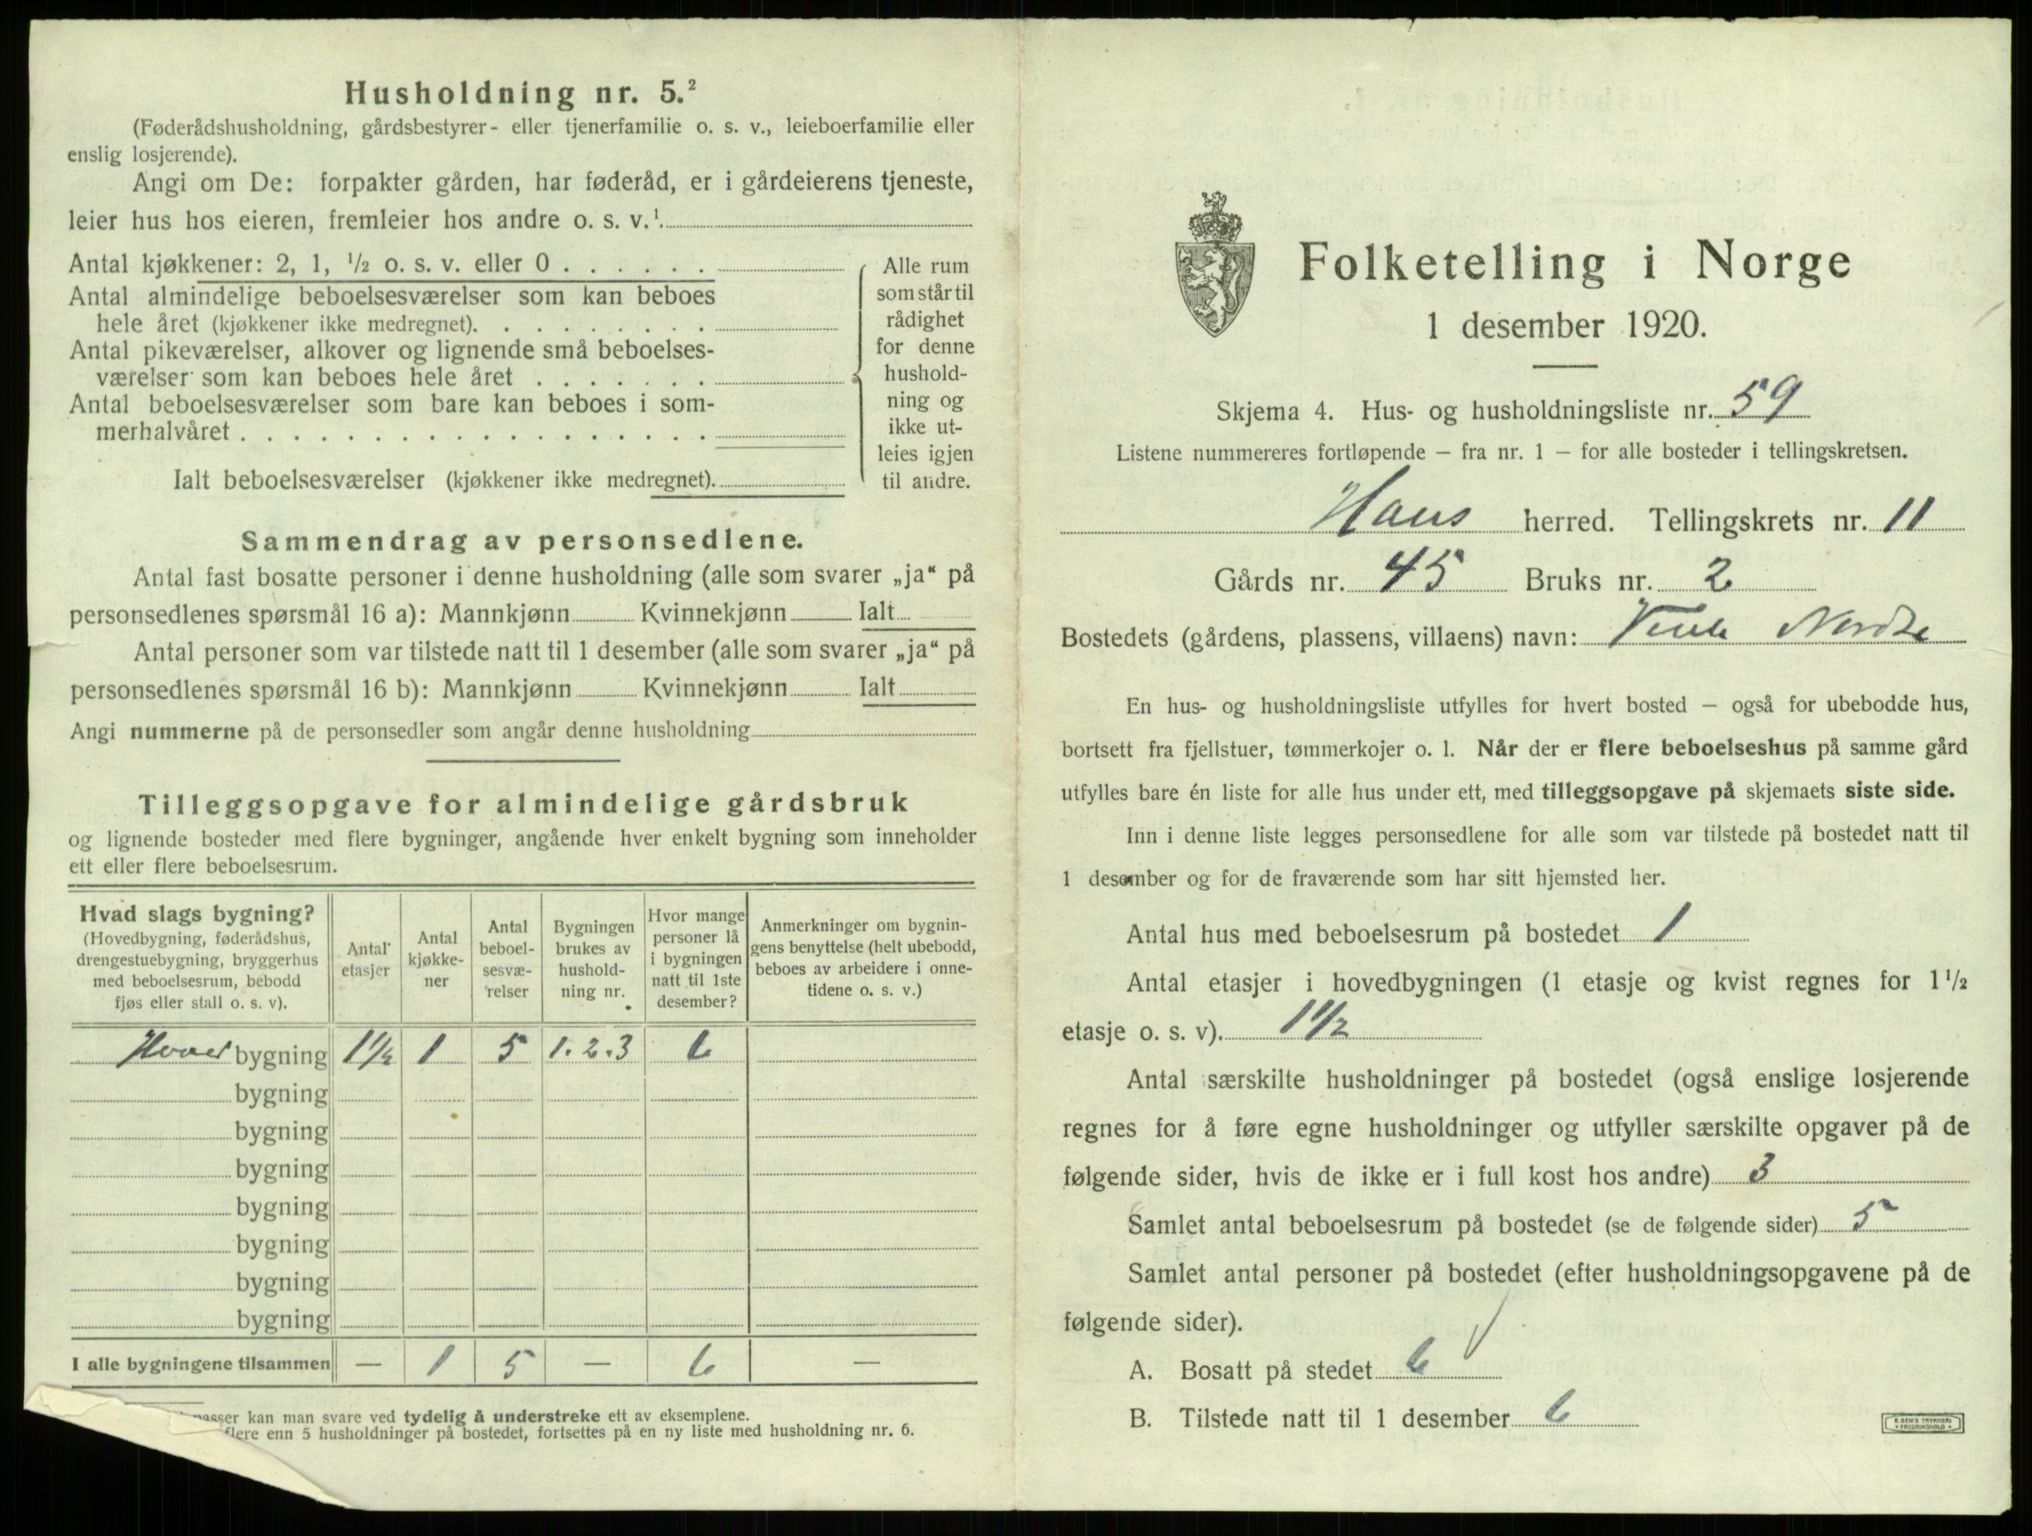 Husholdning nr. 5.²
(Føderådshusholdning, gårdsbestyrer- eller tjenerfamilie o. s. v., leieboerfamilie eller
enslig losjerende).
Angi om De: forpakter gården, har føderåd, er i gårdeierens tjeneste,
leier hus hos eieren, fremleier hos andre o. s. v.¹
Antal kjøkkener: 2, 1, ½ o. s. v. eller 0 . . . . . .
Antal almindelige beboelsesværelser som kan beboes
hele året (kjøkkener ikke medregnet). . . . . . . . .
Antal pikeværelser, alkover og lignende små beboelses-
værelser som kan beboes hele året . . . . . . .
Antal beboelsesværelser som bare kan beboes i som-
merhalvåret . . . . . . . . . . . . . . . . . .
Ialt beboelsesværelser (kjøkkener ikke medregnet).
Alle rum
som står til
rådighet
for denne
hushold-
ning og
ikke ut-
leies igjen
til andre.
Sammendrag av personsedlene.
Antal fast bosatte personer i denne husholdning (alle som svarer „ja“ på
personsedlenes spørsmål 16 a): Mannkjønn Kvinnekjønn Ialt
Antal personer som var tilstede natt til 1 desember (alle som svarer „ja“ på
personsedlenes spørsmål 16 b): Mannkjønn Kvinnekjønn Ialt
Angi nummerne på de personsedler som angår denne husholdning
Tilleggsopgave for almindelige gårdsbruk
og lignende bosteder med flere bygninger, angående hver enkelt bygning som inneholder
ett eller flere beboelsesrum.
Hvad slags bygning?
(Hovedbygning, føderådshus,
drengestuebygning, bryggerhus
med beboelsesrum, bebodd
fjøs eller stall o. s. v).
Antal
etasjer
Antal
kjøkke-
ner
Antal
beboel-
sesvæ-
relser
Bygningen
brukes av
hushold-
ning nr.
Hvor mange
personer lå
i bygningen
natt til 1ste
desember?
Anmerkninger om bygnin-
gens benyttelse (helt ubebodd,
beboes av arbeidere i onne-
tidene o. s. v.)
Hoved bygning 1½ 1 5 1.2.3 6
bygning
bygning
bygning
bygning
bygning
bygning
bygning
I alle bygningene tilsammen — 1 5 — 6 —
passer kan man svare ved tydelig å understreke ett av eksemplene.
flere enn 5 husholdninger på bostedet, fortsettes på en ny liste med husholdning nr. 6.
Folketelling i Norge
1 desember 1920.
Skjema 4. Hus- og husholdningsliste nr. 59
Listene nummereres fortløpende – fra nr. 1 – for alle bosteder i tellingskretsen.
Haus herred. Tellingskrets nr. 11
Gårds nr. 45 Bruks nr. 2
Bostedets (gårdens, plassens, villaens) navn: Nordre
En hus- og husholdningsliste utfylles for hvert bosted – også for ubebodde hus,
bortsett fra fjellstuer, tømmerkojer o. l. Når der er flere beboelseshus på samme gård
utfylles bare én liste for alle hus under ett, med tilleggsopgave på skjemaets siste side.
Inn i denne liste legges personsedlene for alle som var tilstede på bostedet natt til
1 desember og for de fraværende som har sitt hjemsted her.
Antal hus med beboelsesrum på bostedet 1
Antal etasjer i hovedbygningen (1 etasje og kvist regnes for 1 ½
etasje o. s. v). 1½
Antal særskilte husholdninger på bostedet (også enslige losjerende
regnes for å føre egne husholdninger og utfyller særskilte opgaver på de
følgende sider, hvis de ikke er i full kost hos andre) 3
Samlet antal beboelsesrum på bostedet (se de følgende sider) 5
Samlet antal personer på bostedet (efter husholdningsopgavene på de
følgende sider).
A. Bosatt på stedet 6
B. Tilstede natt til 1 desember 6